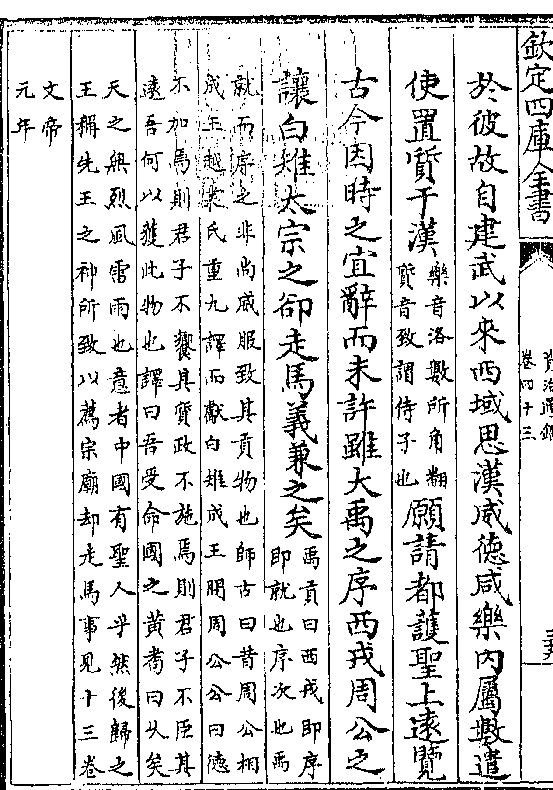 欽定四庫全書
資治通鑑
卷四十三
於彼故自建武以來西域思漢威德咸樂内屬數遣
使置質于漢
樂音洛數所角翻
質音致謂侍子也
願請都護聖上逺覽
古今因時之宜辭而未許雖大禹之序西戎周公之
讓白雉太宗之卻走馬義兼之矣
禹貢曰西戎即序
即就也序次也禹
就而序之非尚威服致其貢物也師古曰昔周公相
成王越裳氏重九譯而獻白雉成王問周公公曰德
不加焉則君子不饗其質政不施焉則君子不臣其
逺吾何以獲此物也譯曰吾受命國之黄耉曰乆矣
天之無烈風雷雨也意者中國有聖人乎然後歸之
王稱先王之神所致以薦宗廟却走馬事見十三卷
文帝
元年